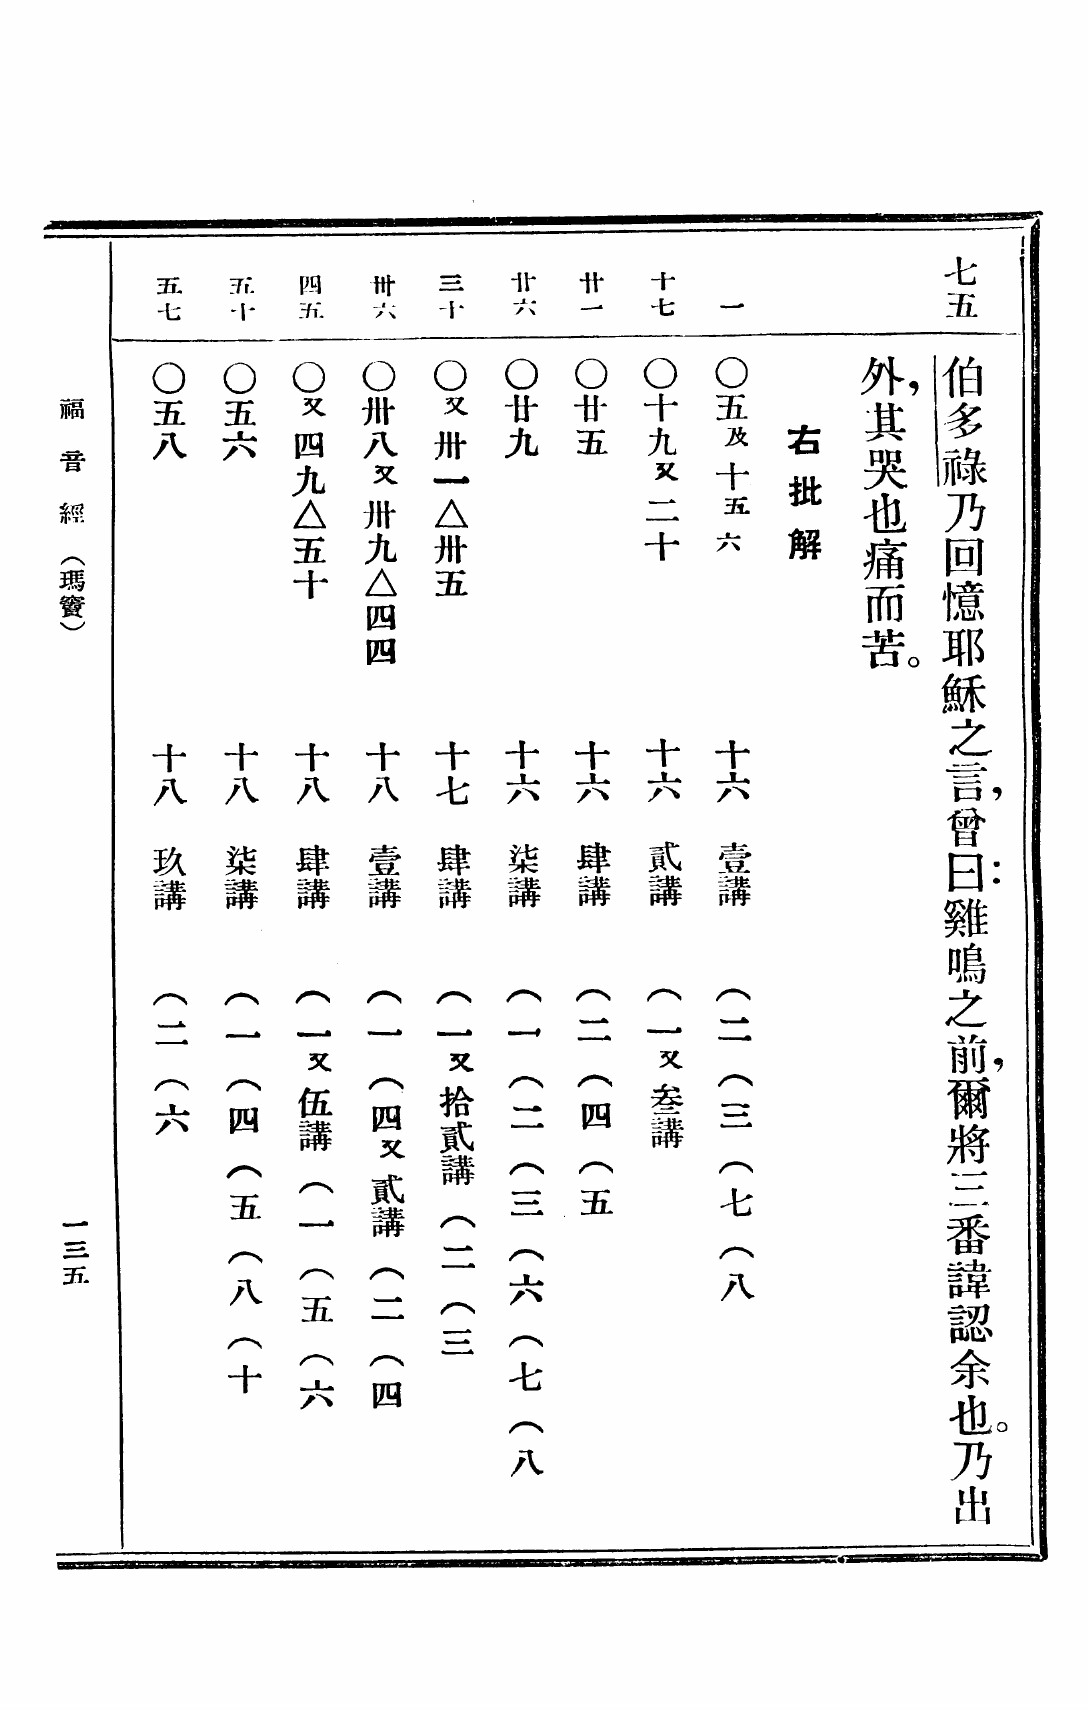 七五
伯多祿乃回憶耶穌之言，曾曰：雞鳴之前，爾將三番諱認余也。乃出
外，其哭也痛而苦。
右批解
一 〇五及十五六 十六 壹講 （二（三（七（八
十七 〇十九又二十 十六 貳講 （一又叁講
廿一 〇廿五 十六 肆講 （二（四（五
廿六 〇廿九 十六 柒講 （一（二（三（六（七（八
三十 〇又卅一△卅五 十七 肆講 （一又拾貳講（二（三
卅六 〇卅八又卅九△四四 十八 壹講 （一（四又貳講（二（四
四五 〇又四九△五十 十八 肆講 （一又伍講（一（五（六
五十 〇五六 十八 柒講 （一（四（五（八（十
五七 〇五八 十八 玖講 （二（六
福音經（瑪竇） 一三五